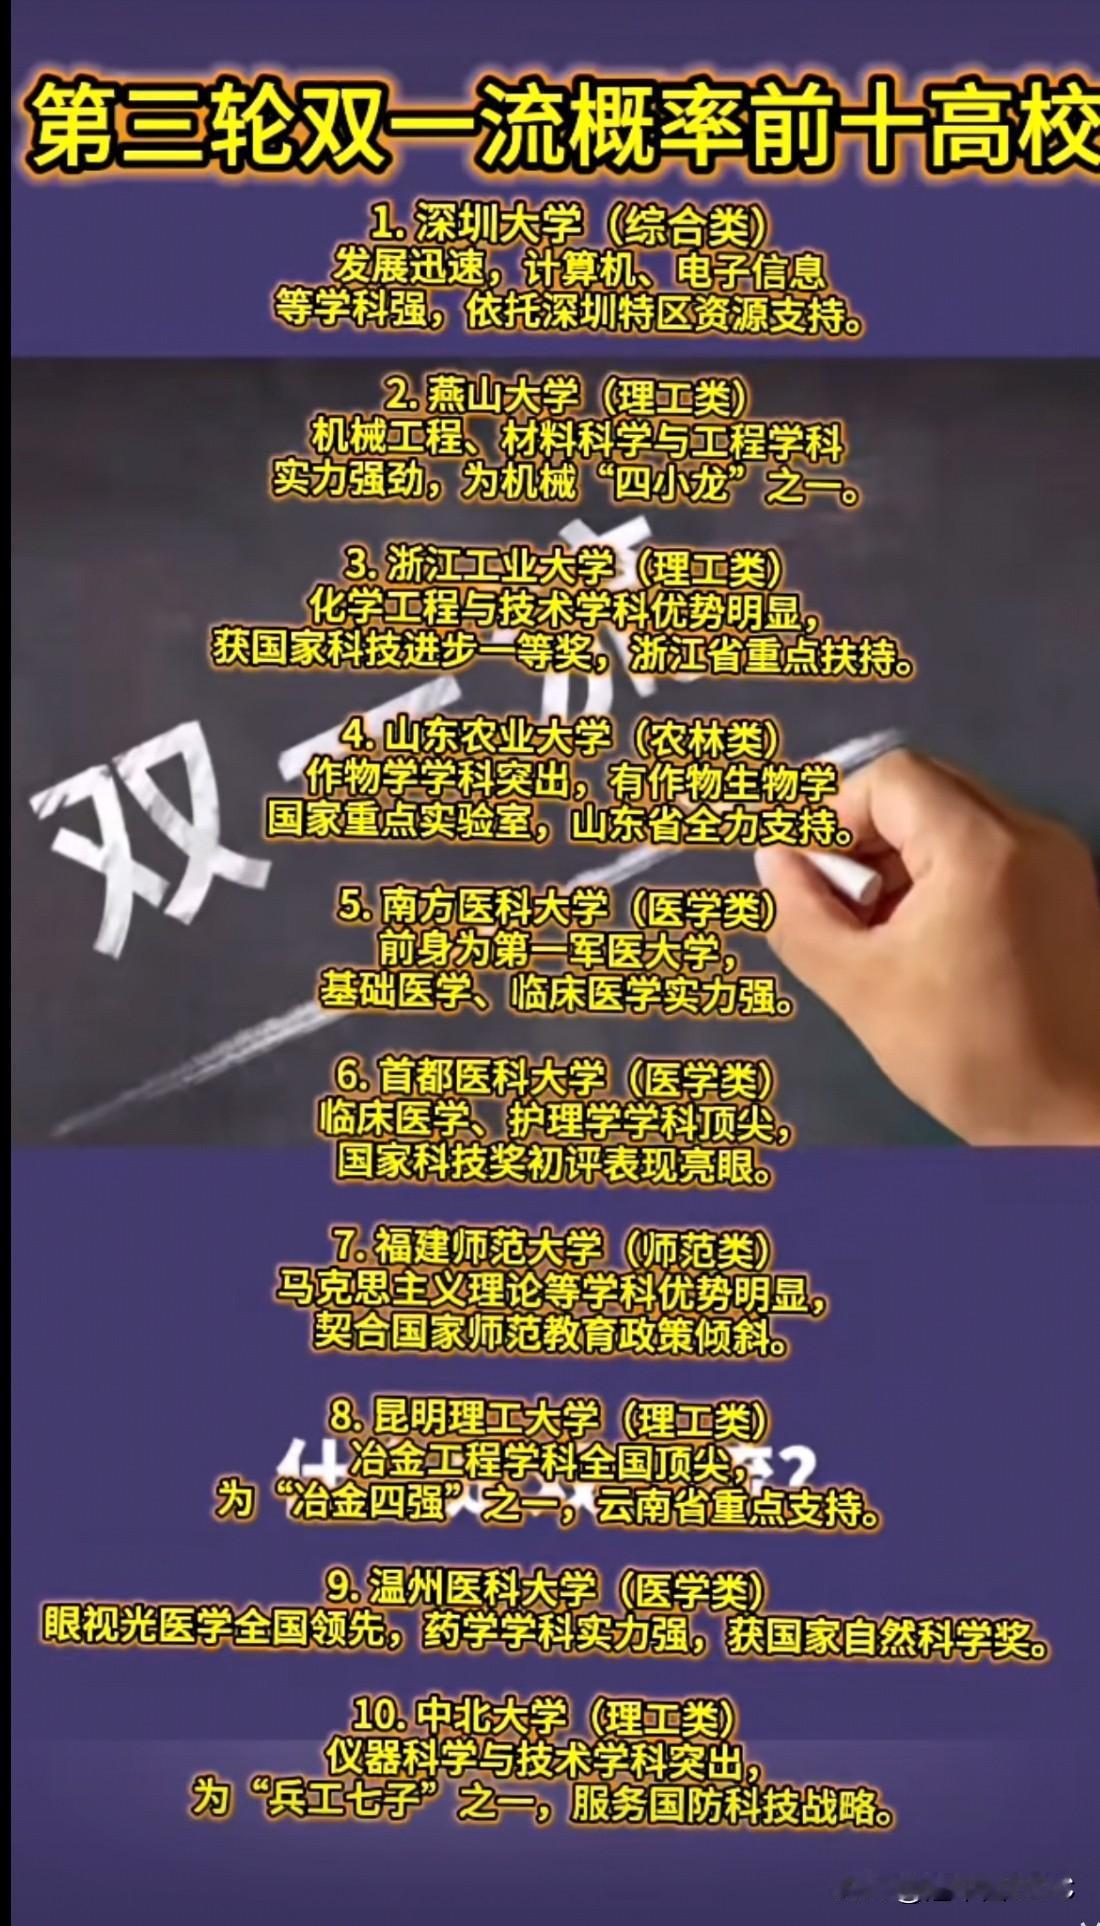 第三轮双一流概率前十高校
1. 深圳大学（综合类）
发展迅速，计算机、电子信息
等学科强，依托深圳特区资源支持。
2. 燕山大学（理工类）
机械工程、材料科学与工程学科
实力强劲，为机械“四小龙”之一。
3. 浙江工业大学（理工类）
化学工程与技术学科优势明显，
获国家科技进步一等奖，浙江省重点扶持。
4. 山东农业大学（农林类）
作物学学科突出，有作物生物学
国家重点实验室，山东省全力支持。
双一
5. 南方医科大学（医学类）
前身为第一军医大学，
基础医学、临床医学实力强。
6. 首都医科大学（医学类）
临床医学、护理学学科顶尖，
国家科技奖初评表现亮眼。
7. 福建师范大学（师范类）
马克思主义理论等学科优势明显，
契合国家师范教育政策倾斜。
8. 昆明理工大学（理工类）
冶金工程学科全国顶尖，
为“冶金四强”之一，云南省重点支持。
9. 温州医科大学（医学类）
眼视光医学全国领先，药学学科实力强，获国家自然科学奖。
10. 中北大学（理工类）
仪器科学与技术学科突出，
为“兵工七子”之一，服务国防科技战略。